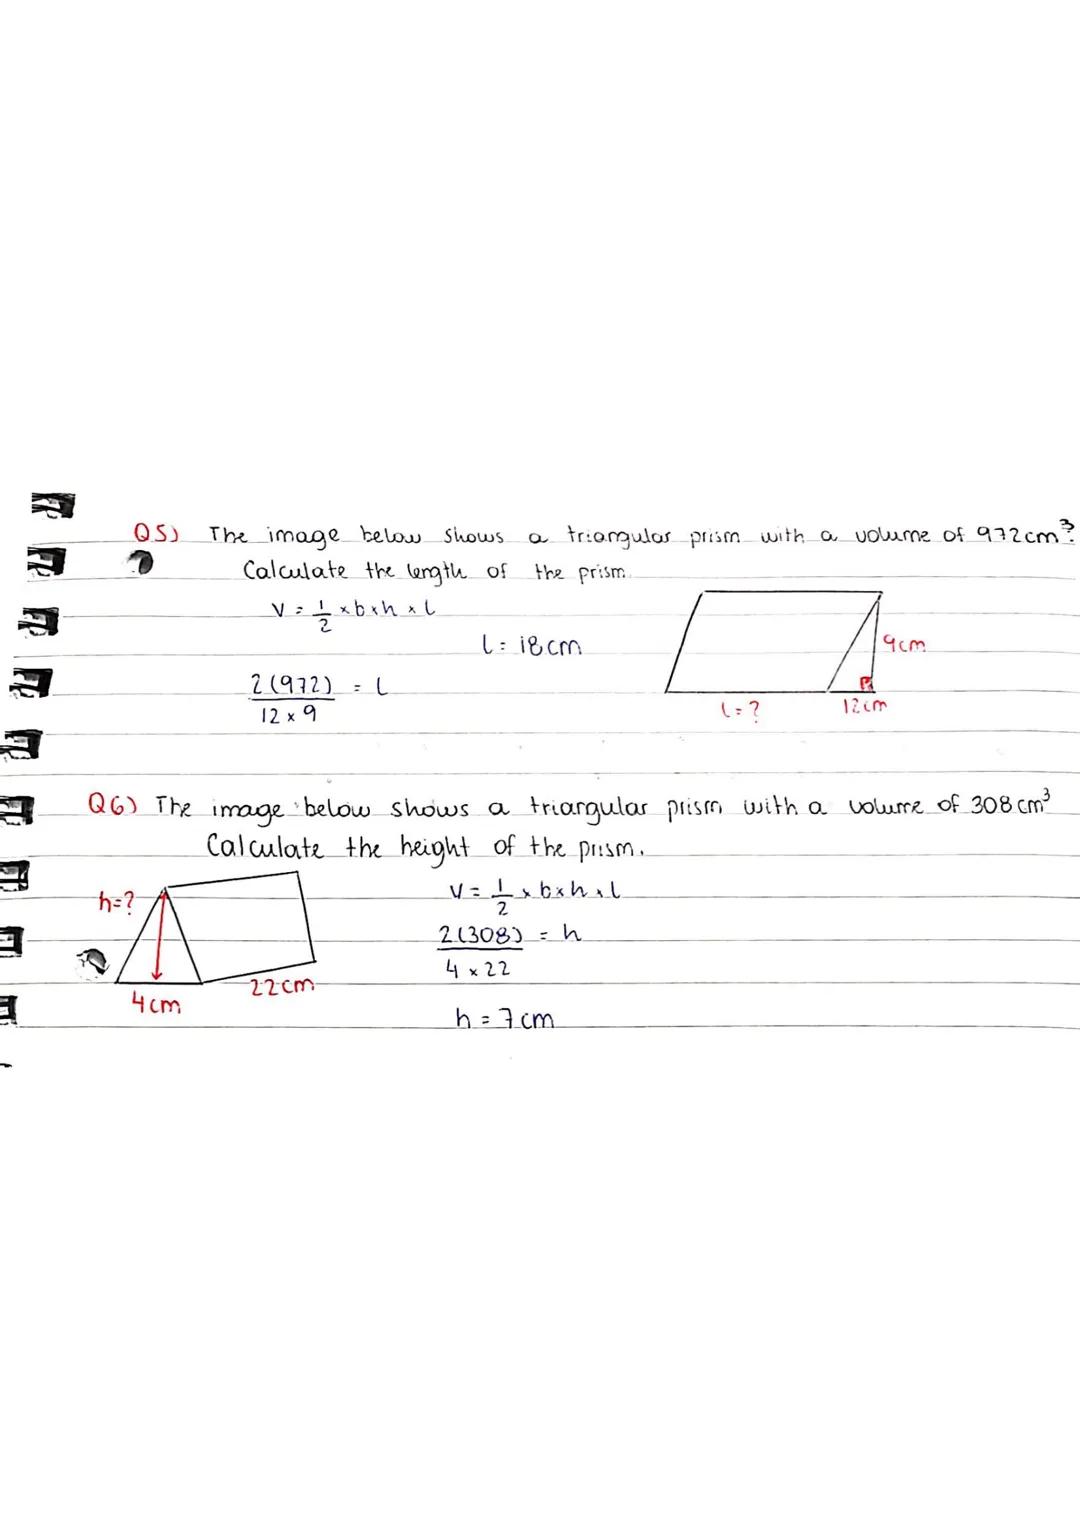 Q5) The image below shows a triangular prism with a volume of 972cm³.
Calculate the length of the prism.
V = 1/2 × b × h × l
l = 18cm
9cm
2(972) = l
12 × 9
l = ?
12cm
Q6) The image below shows a triangular prism with a volume of 308cm³
Calculate the height of the prism.
h=?
V = 1/2 × b × h × l
2(308) = h
4 × 22
22cm
4cm
h = 7cm